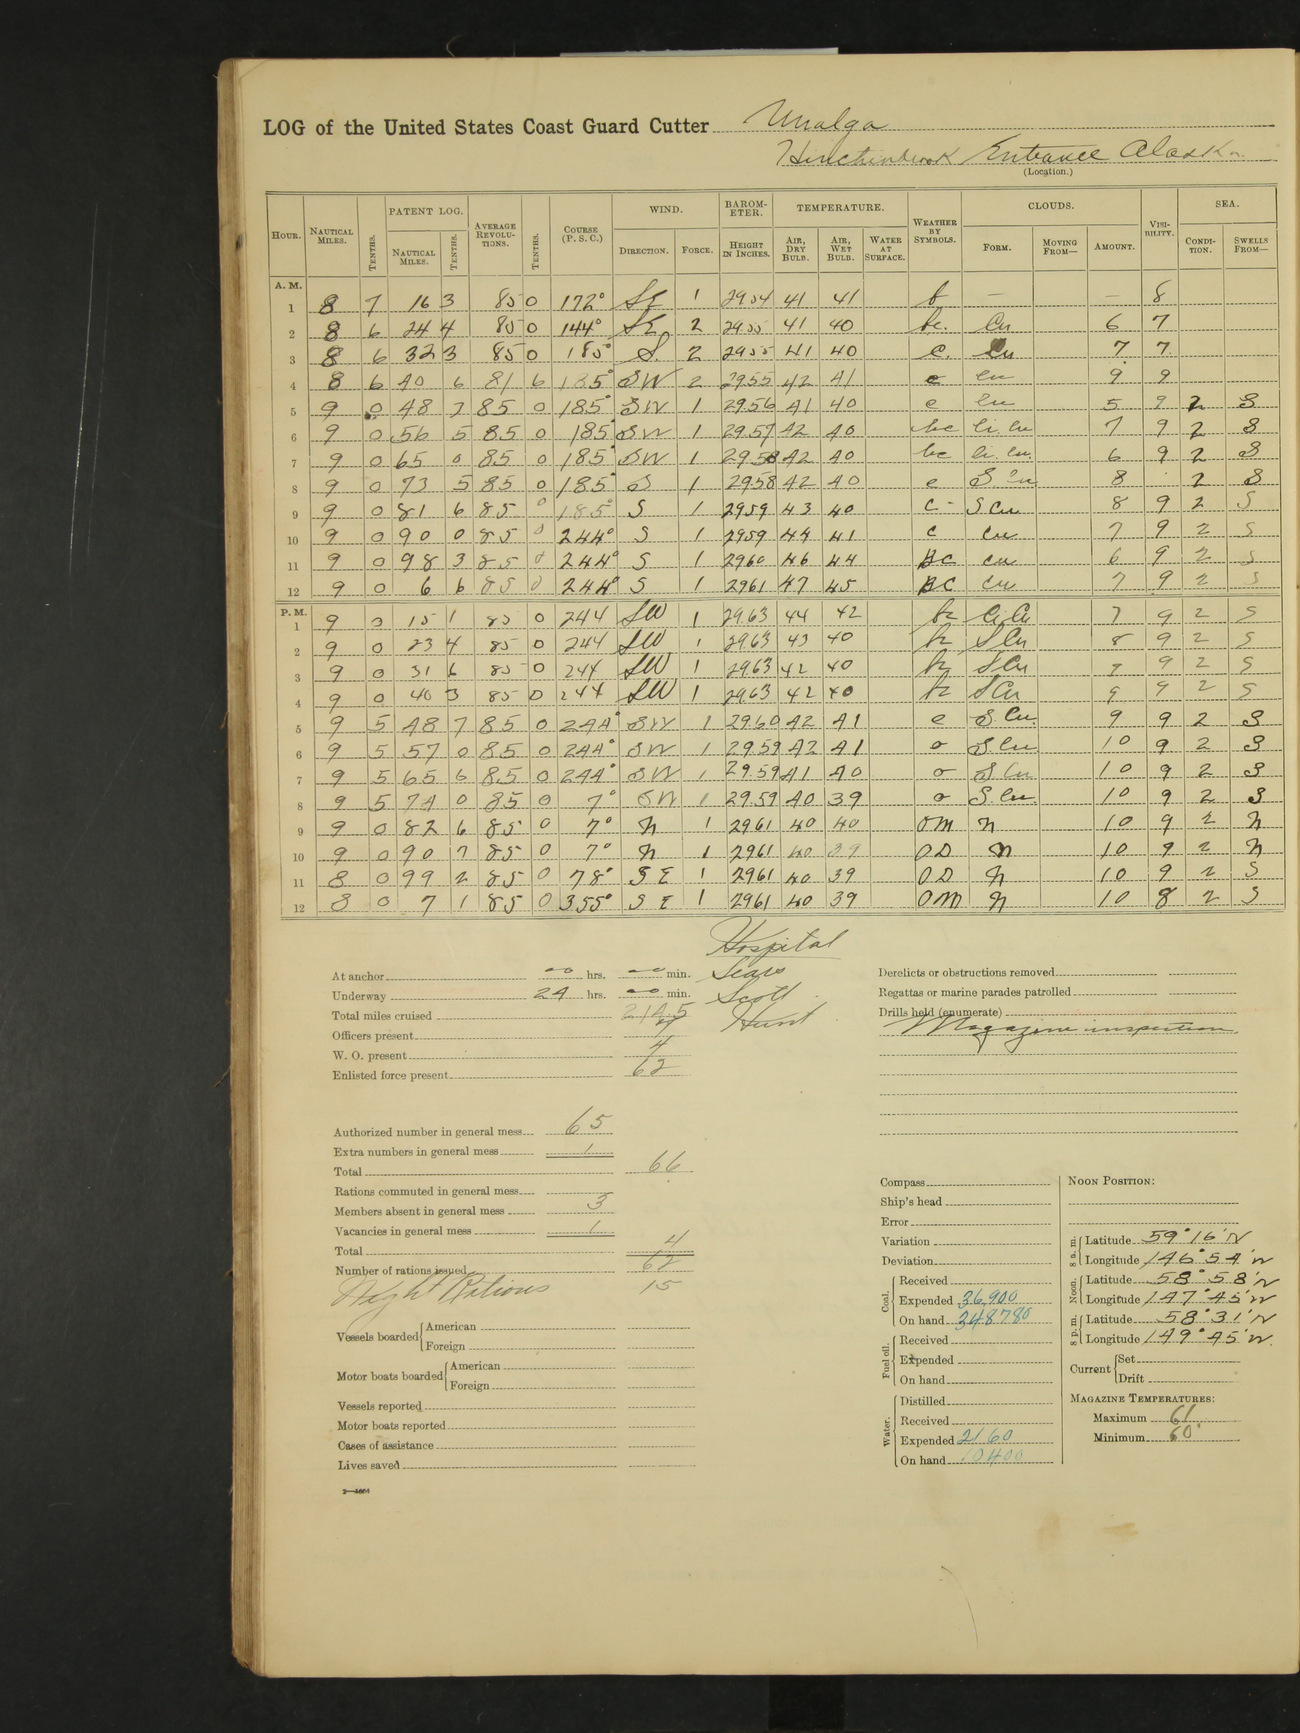 LOG of the United States Coast Guard Cutter Unalga
Hinchinbrook Entrance Alaska
(Location.)
HOUR. NAUTICAL MILES. TENTHS. PATENT LOG. NAUTICAL MILES. TENTHS. AVERAGE REVOLUTIONS. TENTHS. COURSE (P. S. C.) WIND. DIRECTION. FORCE. BAROMETER. HEIGHT IN INCHES. TEMPERATURE. AIR, DRY BULB. AIR, WET BULB. WATER AT SURFACE. WEATHER BY SYMBOLS. CLOUDS. FORM. MOVING FROM— AMOUNT. VISIBILITY. SEA. CONDITION. SWELLS FROM—
A. M.
1 8 7 16 3 85 0 172° SE 1 2954 41 41 b — — 8
2 8 6 24 4 85 0 144° SE 2 2955 41 40 bc. Cu 6 7
3 8 6 32 3 85 0 185° S. 2 2955 41 40 c. Cu 7 7
4 8 6 40 6 81 6 185° SW 2 2955 42 41 c cu 9 9
5 9 0 48 7 85 0 185° SW 1 29.56 41 40 c cu 5 9 2 S
6 9 0 56 5 85 0 185° SW 1 29.57 42 40 bc ci. cu 7 9 2 S
7 9 0 65 0 85 0 185° SW 1 29.58 42 40 bc ci. cu. 6 9 2 S
8 9 0 73 5 85 0 185° S 1 2958 42 40 c S. Cu 8 2 S
9 9 0 81 6 85 0 185° S 1 2959 43 40 C S Cu 8 9 2 S
10 9 0 90 0 85 0 244° S 1 2959 44 41 C Cu 7 9 2 S
11 9 0 98 3 85 0 244° S 1 2960 46 44 BC cu 6 9 2 S
12 9 0 6 6 85 0 244° S 1 2961 47 45 BC Cu 7 9 2 S
P. M.
1 9 0 15 1 85 0 244 SW 1 29.63 44 42 bc Ci Cu 7 9 2 S
2 9 0 23 4 85 0 244 SW 1 2963 43 40 bc S Cu 8 9 2 S
3 9 0 31 6 85 0 244 SW 1 2963 42 40 bc S Cu 9 2 S
4 9 0 40 3 85 0 244 SW 1 2963 42 40 bc S Cu 9 9 2 S
5 9 5 48 7 85 0 244° SW 1 29.60 42 41 c S. Cu. 9 9 2 S
6 9 5 57 0 85 0 244° SW 1 29.59 42 41 o S. Cu. 10 9 2 S
7 9 5 65 6 85 0 244° SW 1 29.59 41 40 o S. Cu 10 9 2 S
8 9 5 74 0 85 0 7° SW 1 29.59 40 39 o S. Cu. 10 9 2 S
9 9 0 82 6 85 0 7° N 1 2961 40 40 OM N 10 9 2 N
10 9 0 90 7 85 0 7° N 1 2961 40 39 OD N 10 9 2 N
11 8 0 99 2 85 0 78° SE 1 2961 40 39 OD N 10 9 2 S
12 8 0 7 1 85 0 355° SE 1 2961 40 39 OM N 10 8 2 S
Hospital
Sears
Scott
Hunt
At anchor -- hrs. -- min.
Underway 24 hrs. -- min.
Total miles cruised 214.5
Officers present
W. O. present 4
Enlisted force present 62
Authorized number in general mess 65
Extra numbers in general mess 1
Total 66
Rations commuted in general mess
Members absent in general mess 3
Vacancies in general mess 1
Total 4
Number of rations issued 62
Night Rations 15
Vessels boarded American
Foreign
Motor boats boarded American
Foreign
Vessels reported
Motor boats reported
Cases of assistance
Lives saved
2—1664
Derelicts or obstructions removed
Regattas or marine parades patrolled
Drills held (enumerate)
Magazine inspection
Compass
Ship's head
Error
Variation
Deviation
Coal. Received
Expended 36,900
On hand 348780
Fuel oil. Received
Expended
On hand
Water. Distilled
Received
Expended 2160
On hand 10400
NOON POSITION:
8 a. m. Latitude 59° 16' N
Longitude 146° 54' W
Noon. Latitude 58° 58' N
Longitude 147° 45' W
8 p. m. Latitude 58° 31' N
Longitude 149° 45' W.
Current Set
Drift
MAGAZINE TEMPERATURES:
Maximum 61
Minimum 60°